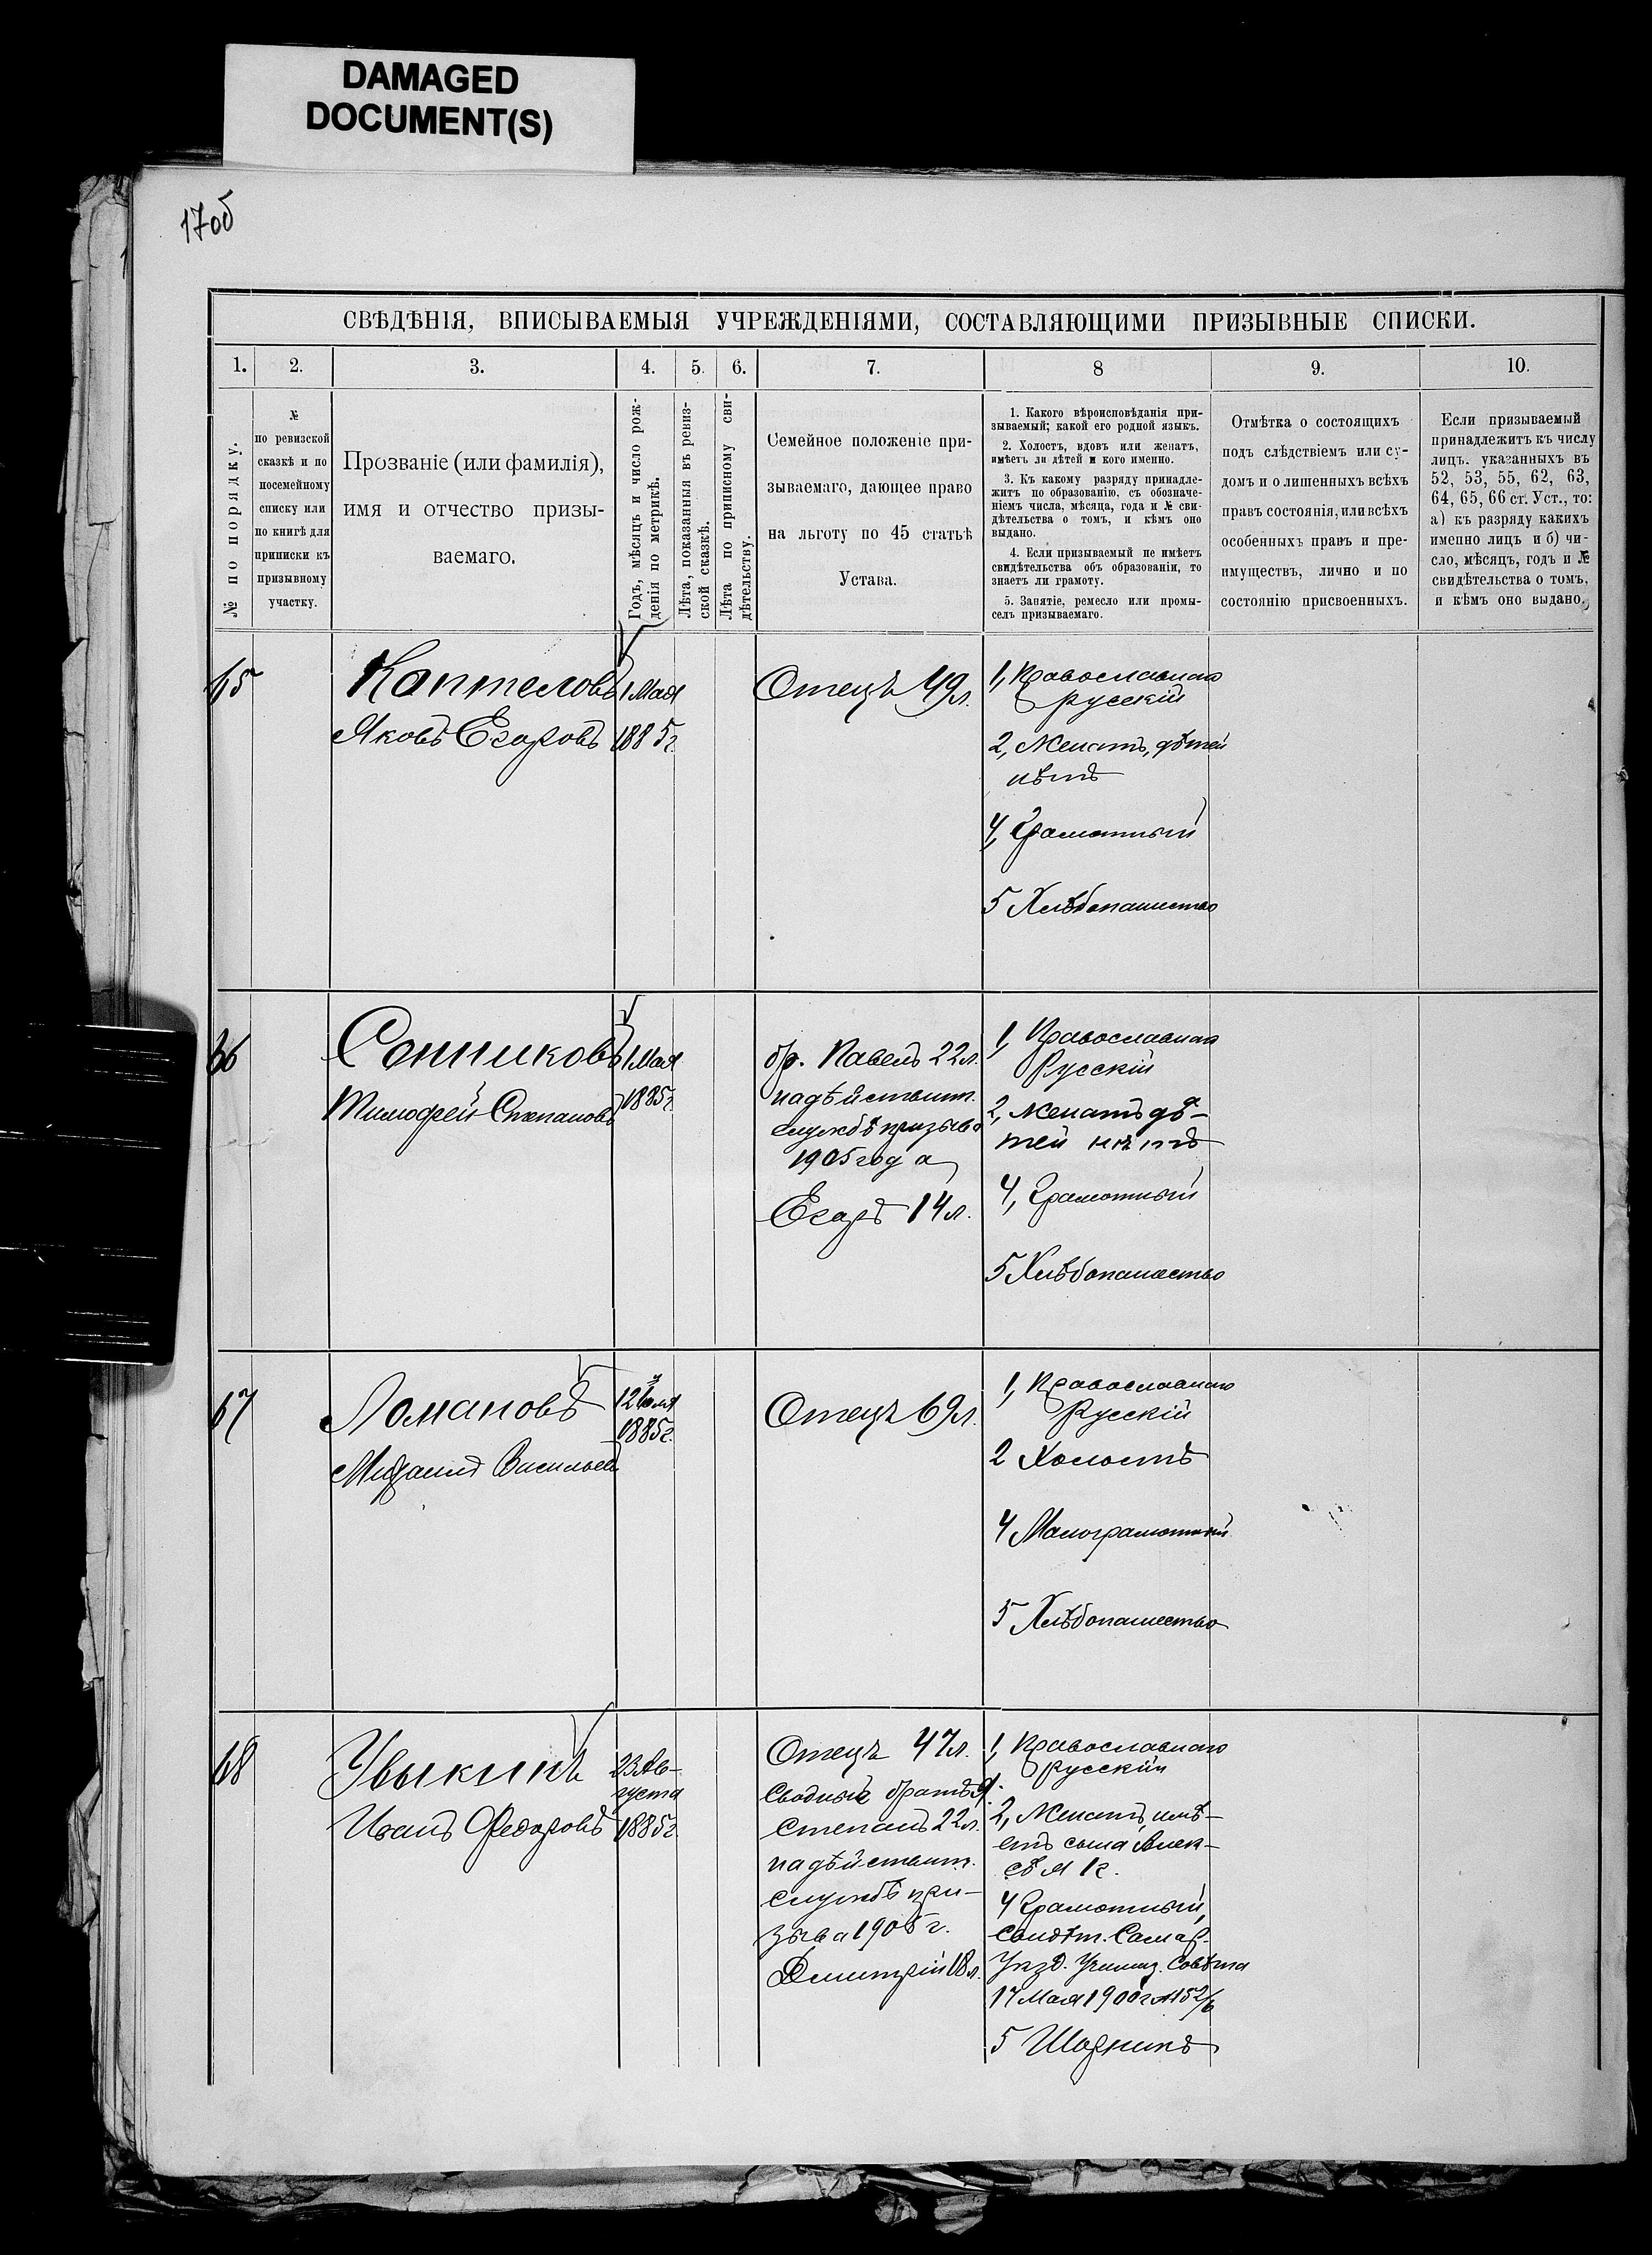 DAMAGED
DOCUMENT(S)
17об
СВѢДѢНІЯ, ВПИСЫВАЕМЫЯ УЧРЕЖДЕНІЯМИ, СОСТАВЛЯЮЩИМИ ПРИЗЫВНЫЕ СПИСКИ.
1. 2. 3. 4. 5. 6. 7. 8 9. 10.
№ по порядку.
№
по ревизской
сказкѣ и по
посемейному
списку или
по книгѣ для
приписки къ
призывному
участку.
Прозваніе (или фамилія),
имя и отчество призы-
ваемаго.
Годъ, мѣсяцъ и число рож-
денія по метрикѣ.
Лѣта, показанныя въ ревиз-
ской сказкѣ.
Лѣта по приписному сви-
дѣтельству.
Семейное положеніе при-
зываемаго, дающее право
на льготу по 45 статьѣ
Устава.
1. Какого вѣроисповѣданія при-
зываемый; какой его родной языкъ.
2. Холостъ, вдовъ или женатъ,
имѣетъ ли дѣтей и кого именно.
3. Къ какому разряду принадле-
житъ по образованію, съ обозначе-
ніемъ числа, мѣсяца, года и № сви-
дѣтельства о томъ, и кѣмъ оно
выдано.
4. Если призываемый не имѣетъ
свидѣтельства объ образованіи, то
знаетъ ли грамоту.
5. Занятіе, ремесло или промы-
селъ призываемаго.
Отмѣтка о состоящихъ
подъ слѣдствіемъ или су-
домъ и о лишенныхъ всѣхъ
правъ состоянія, или всѣхъ
особенныхъ правъ и пре-
имуществъ, лично и по
состоянію присвоенныхъ.
Если призываемый
принадлежитъ къ числу
лицъ, указанныхъ въ
52, 53, 55, 62, 63,
64, 65, 66 ст. Уст., то:
а) къ разряду какихъ
именно лицъ и б) чи-
сло, мѣсяцъ, годъ и №
свидѣтельства о томъ,
и кѣмъ оно выдано.
65
Коптеловъ
Яковъ Егоровъ
1 Мая
1885г.
Отецъ 49л.
1, Православнаго
русскій
2, Женатъ, дѣтей
нѣтъ
4, Грамотный
5 Хлѣбопашество
66
Сонниковъ
Тимофей Степановъ
1 Мая
1885г.
бр. Павелъ 22л.
на дѣйствит.
службѣ призыва
1905 года
Егоръ 14л.
1, Православнаго
Русскій
2, Женатъ дѣ-
тей нѣтъ
4, Грамотный
5 Хлѣбопашество
67
Ломановъ
Михаилъ Васильевъ
12 Іюля
1885г.
Отецъ 69л.
1, Православнаго
Русскій
2 Холостъ
4 Малограмотный
5 Хлѣбопашество
68
Увыкинъ
Иванъ Федоровъ
23 Ав-
густа
1885г.
Отецъ 47л.
Сводный братья
Степанъ 22л.
на дѣйствит.
службѣ при-
зыва 1905 г.
Дмитрій 18л.
1, Православнаго
Русскій
2, Женатъ, имѣ-
етъ сына Алек-
сѣя 1г.
4 Грамотный,
свидѣт. Самар.
Уѣзд. Училищ. Совѣта
17 Мая 1900г №152/6
5 Шорникъ